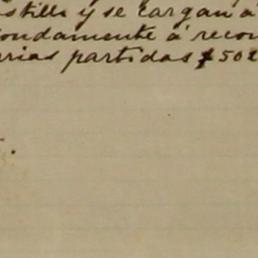 stillo y se cargan á
ondamente á recon
rias partidas $502